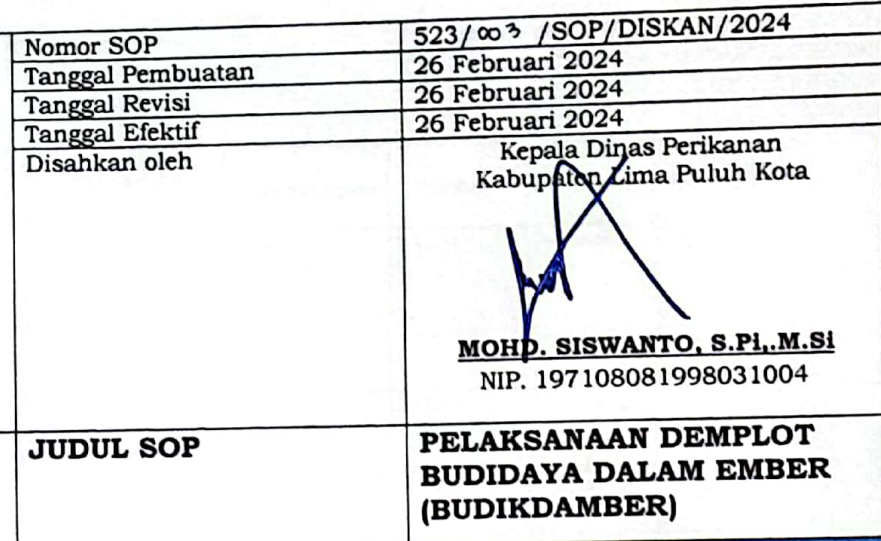 Nomor SOP 523/003 /SOP/DISKAN/2024
Tanggal Pembuatan 26 Februari 2024
Tanggal Revisi 26 Februari 2024
Tanggal Efektif 26 Februari 2024
Disahkan oleh Kepala Dinas Perikanan
Kabupaten Lima Puluh Kota
MOHD. SISWANTO, S.Pi,.M.Si
NIP. 197108081998031004
JUDUL SOP PELAKSANAAN DEMPLOT
BUDIDAYA DALAM EMBER
(BUDIKDAMBER)